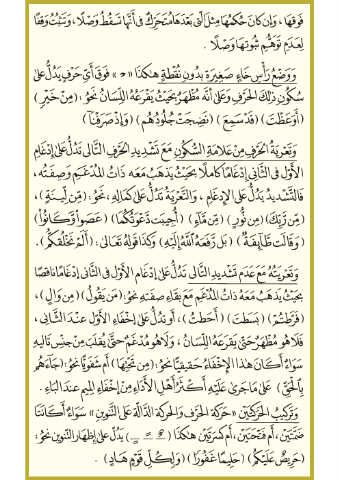 فوقها ، وإن كان حكمها مثل التي بعدها متحرك في أنها تسقط وصلًا ، وتثبت وقفًا
لعدم توهم ثبوتها وصلًا .
ووضع رأس خاء صغيرة بدون نقطة هكذا « حـ » فوق أي حرف يدل على
سكون ذلك الحرف وعلى أنه مظهر بحيث يقرعه اللسان نحو : ( مِنْ خَيْرٍ )
( أَوَعَظْتَ ) ( قَدْ سَمِعَ ) ( نَضِجَتْ جُلُودُهُم ) ( وَإِذْ صَرَفْنَآ )
وتعرية الحرف من علامة السكون مع تشديد الحرف التالي تدل على إدغام
الأول في الثاني إدغامًا كاملًا بحيث يذهب معه ذات المدغم وصفته ،
فالتشديد يدل على الإدغام ، والتعرية تدل على كماله ، نحو : ( مِّن لِّينَةٍ ) ،
( مِّن رَّبِّكَ ) ( مِن نُّورٍ ) ( مِّن مَّآءٍ ) ( أُجِيبَت دَّعْوَتُكُمَا ) ( عَصَوا۟ وَّكَانُوا۟ )
( وَقَالَت طَّآئِفَةٌ ) ( بَل رَّفَعَهُ ٱللَّهُ إِلَيْهِ ) وكذا قوله تعالى : ( أَلَمْ نَخْلُقكُّم ) .
وتعريته مع عدم تشديد التالي تدل على إدغام الأول في الثاني إدغامًا ناقصًا
بحيث يذهب معه ذات المدغم مع بقاء صفته نحو : ( مَن يَقُولُ ) ( مِن وَالٍ ) ،
( فَرَّطتُمْ ) ( بَسَطتَ ) ( أَحَطتُ ) ، أو تدل على إخفاء الأول عند الثاني ،
فلا هو مظهر حتى يقرعه اللسان ، ولا هو مدغم حتى يقلب من جنس تاليه
سواء أكان هذا الإخفاء حقيقيًّا نحو : ( مِن تَحْتِهَا ) أم شفويًّا نحو : ( جَآءَهُم
بِٱلْحَقِّ ) على ما جرى عليه أكثر أهل الأداء من إخفاء الميم عند الباء .
وتركيب الحركتين « حركة الحرف والحركة الدالة على التنوين » سواء أكانتا
ضمتين ، أم فتحتين ، أم كسرتين هكذا ( ـٌ ـً ـٍ ) يدل على إظهار التنوين نحو :
( حَرِيصٌ عَلَيْكُم ) ( حَلِيمًا غَفُورًا ) ( وَلِكُلِّ قَوْمٍ هَادٍ ) .